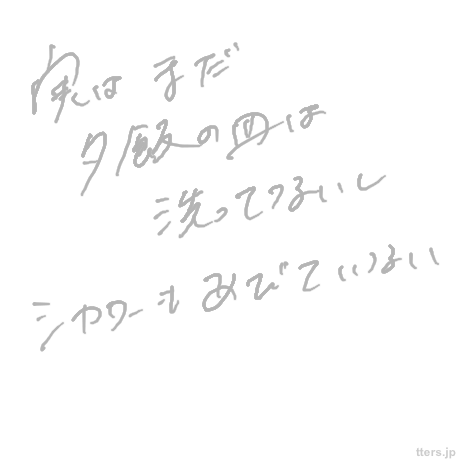 実は まだ
夕飯の皿は
洗ってないし
シャワーも あびていない
tters.jp